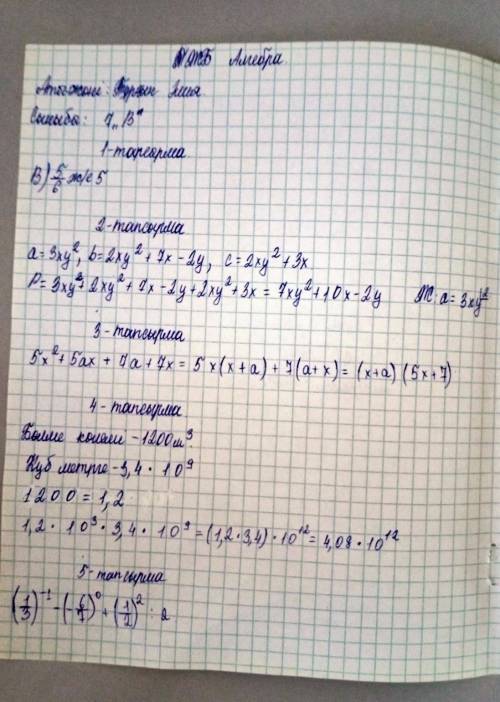 ТЖБ Алгебра.
Аты-жөні:
Сыныбы: 7 "В"
1-тапсырма
В) 5/6 және 5
2-тапсырма
a=3xy², b=2xy²+7x-2y, c=2xy²+3x
P=3xy²+2xy²+7x-2y+2xy²+3x=7xy²+10x-2y
3-тапсырма
5x²+5ax+7a+7x=5x(x+a)+7(a+x)=(x+a)(5x+7)
4-тапсырма
Бөлме көлемі -1200м³
Куб метрге -3,4·10⁹
1200=1,2
1,2·10³·3,4·10⁹=(1,2·3,4)·10¹²=4,08·10¹²
5-тапсырма
(1/3)⁻¹-(-6/7)⁰+(1/2)²:2